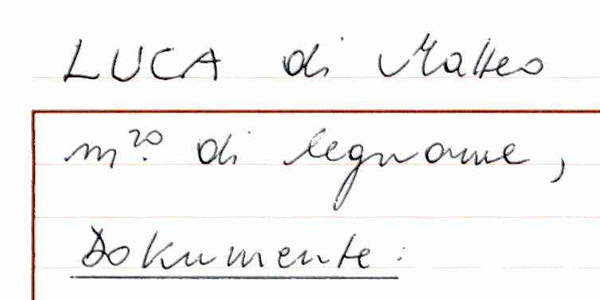 LUCA di Matteo
m.ro di legname,
Dokumente: